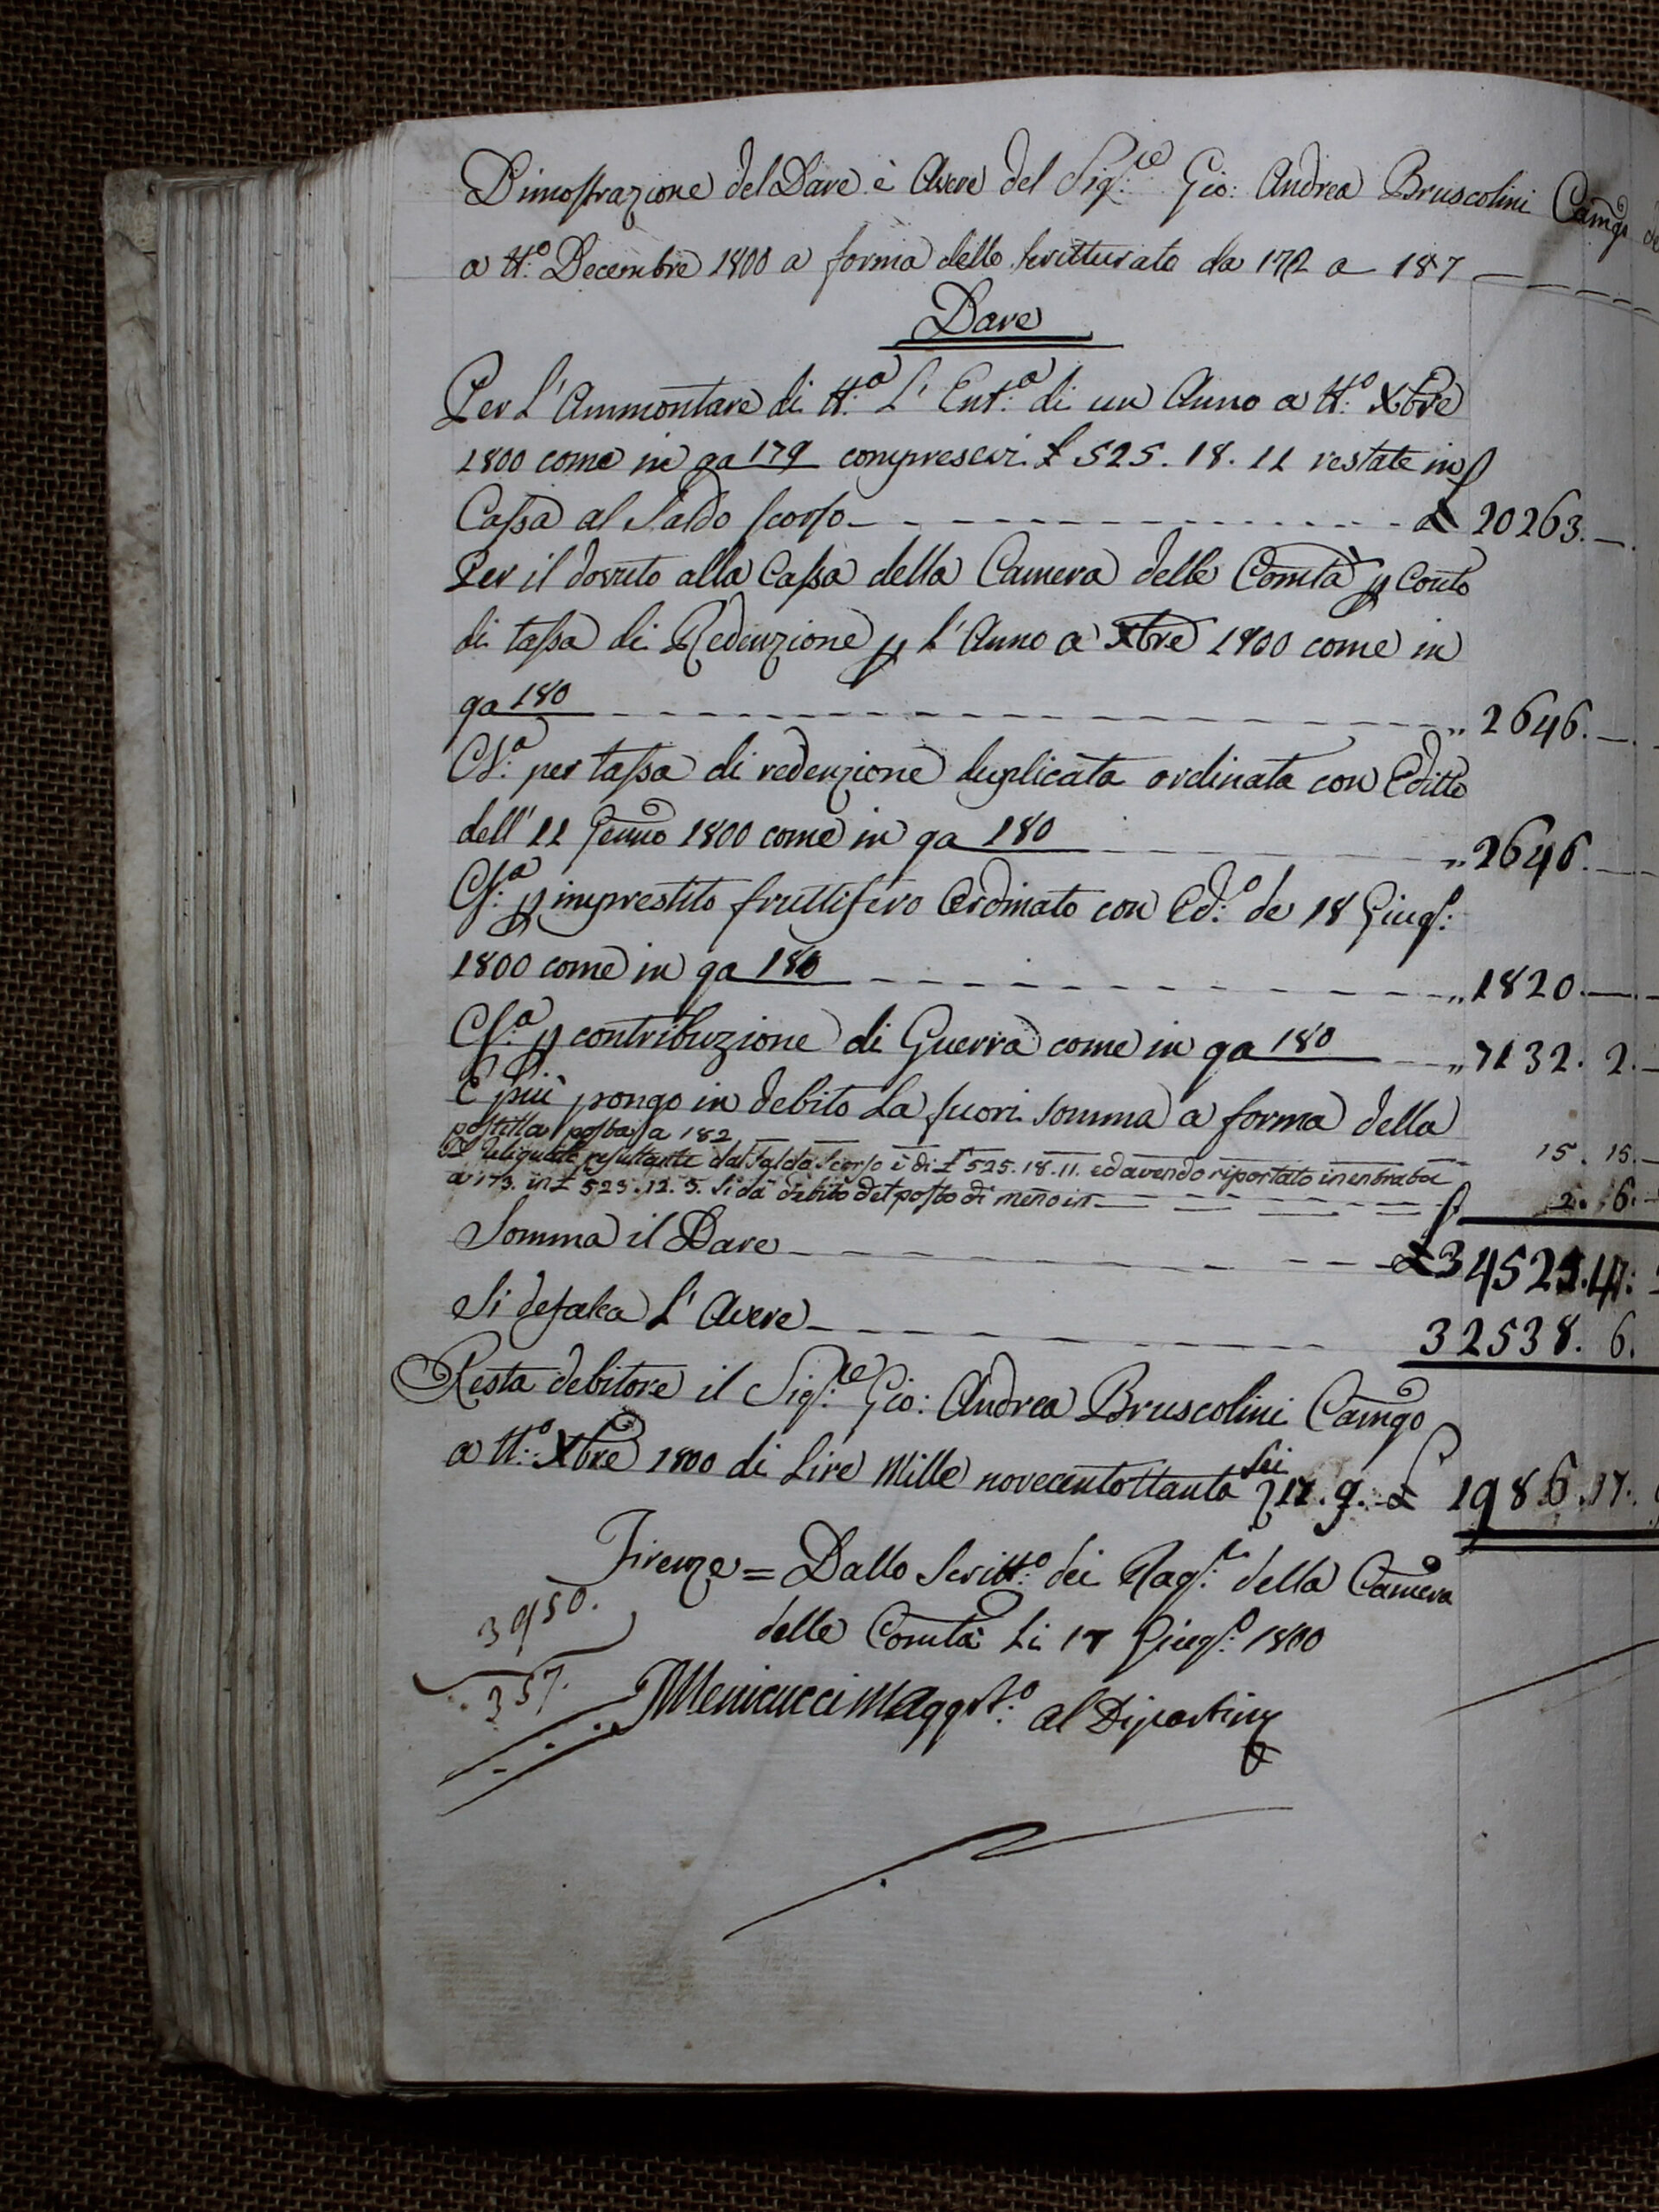 Dimostrazione del Dare è Avere del Sig:re Gio: Andrea Bruscolini Camgo
a tt:o Decembre 1800 a forma dello scritturato da 172 a 187
Dare
Per L'Ammontare di tt:a L'Ent:a di un Anno a tt:o Xbre
1800 come in qa 179 compresevi £ 525. 18. 11 restate in
Cassa al Saldo scorso £ 20263. —.
Per il dovuto alla Cassa della Camera delle Comtà p Conto
di tassa di Redenzione p L'Anno a Xbre 1800 come in
qa 180 „ 2646. —.
Cs:a per tassa di redenzione duplicata ordinata con Editto
dell' 11 Genno 1800 come in qa 180 „ 2646. —
Cs:a p imprestito fruttifero Ordinato con Ed:o de 18 Giug:
1800 come in qa 180 „ 1820. —
Cs:a p contribuzione di Guerra come in qa 180 „ 7132. 2. —
E più pongo in debito La fuori somma a forma della
postilla posta a 182 15. 15. —
resultante dal Saldo Scorso è di £ 525. 18. 11. ed avendo riportato in entrata
a 173. in £ 523. 12. 5. si dà debito del posto di meno in 2. 6. —
Somma il Dare £ 34525. 4:
Si defalca L'Avere 32538. 6.
Resta debitore il Sig:re Gio: Andrea Bruscolini Camgo
a tt:o Xbre 1800 di Lire Mille novecentottanta Sei 17. 9. £ 1986. 17.
Firenze = Dallo Scritt:o dei Rag:i della Camera
delle Comtà Li 17 Giug:o 1800
3950.
357.
Menicucci al Dipartim